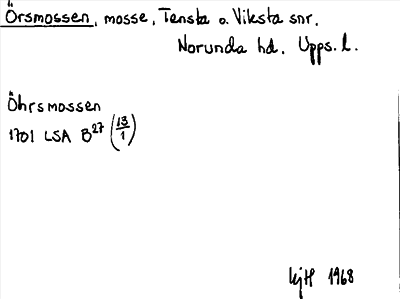 Örsmossen, mosse, Tensta o. Viksta snr.
Norunda hd. Upps. l.
Öhrsmossen
1701 LSA B27 (13/1)
1968